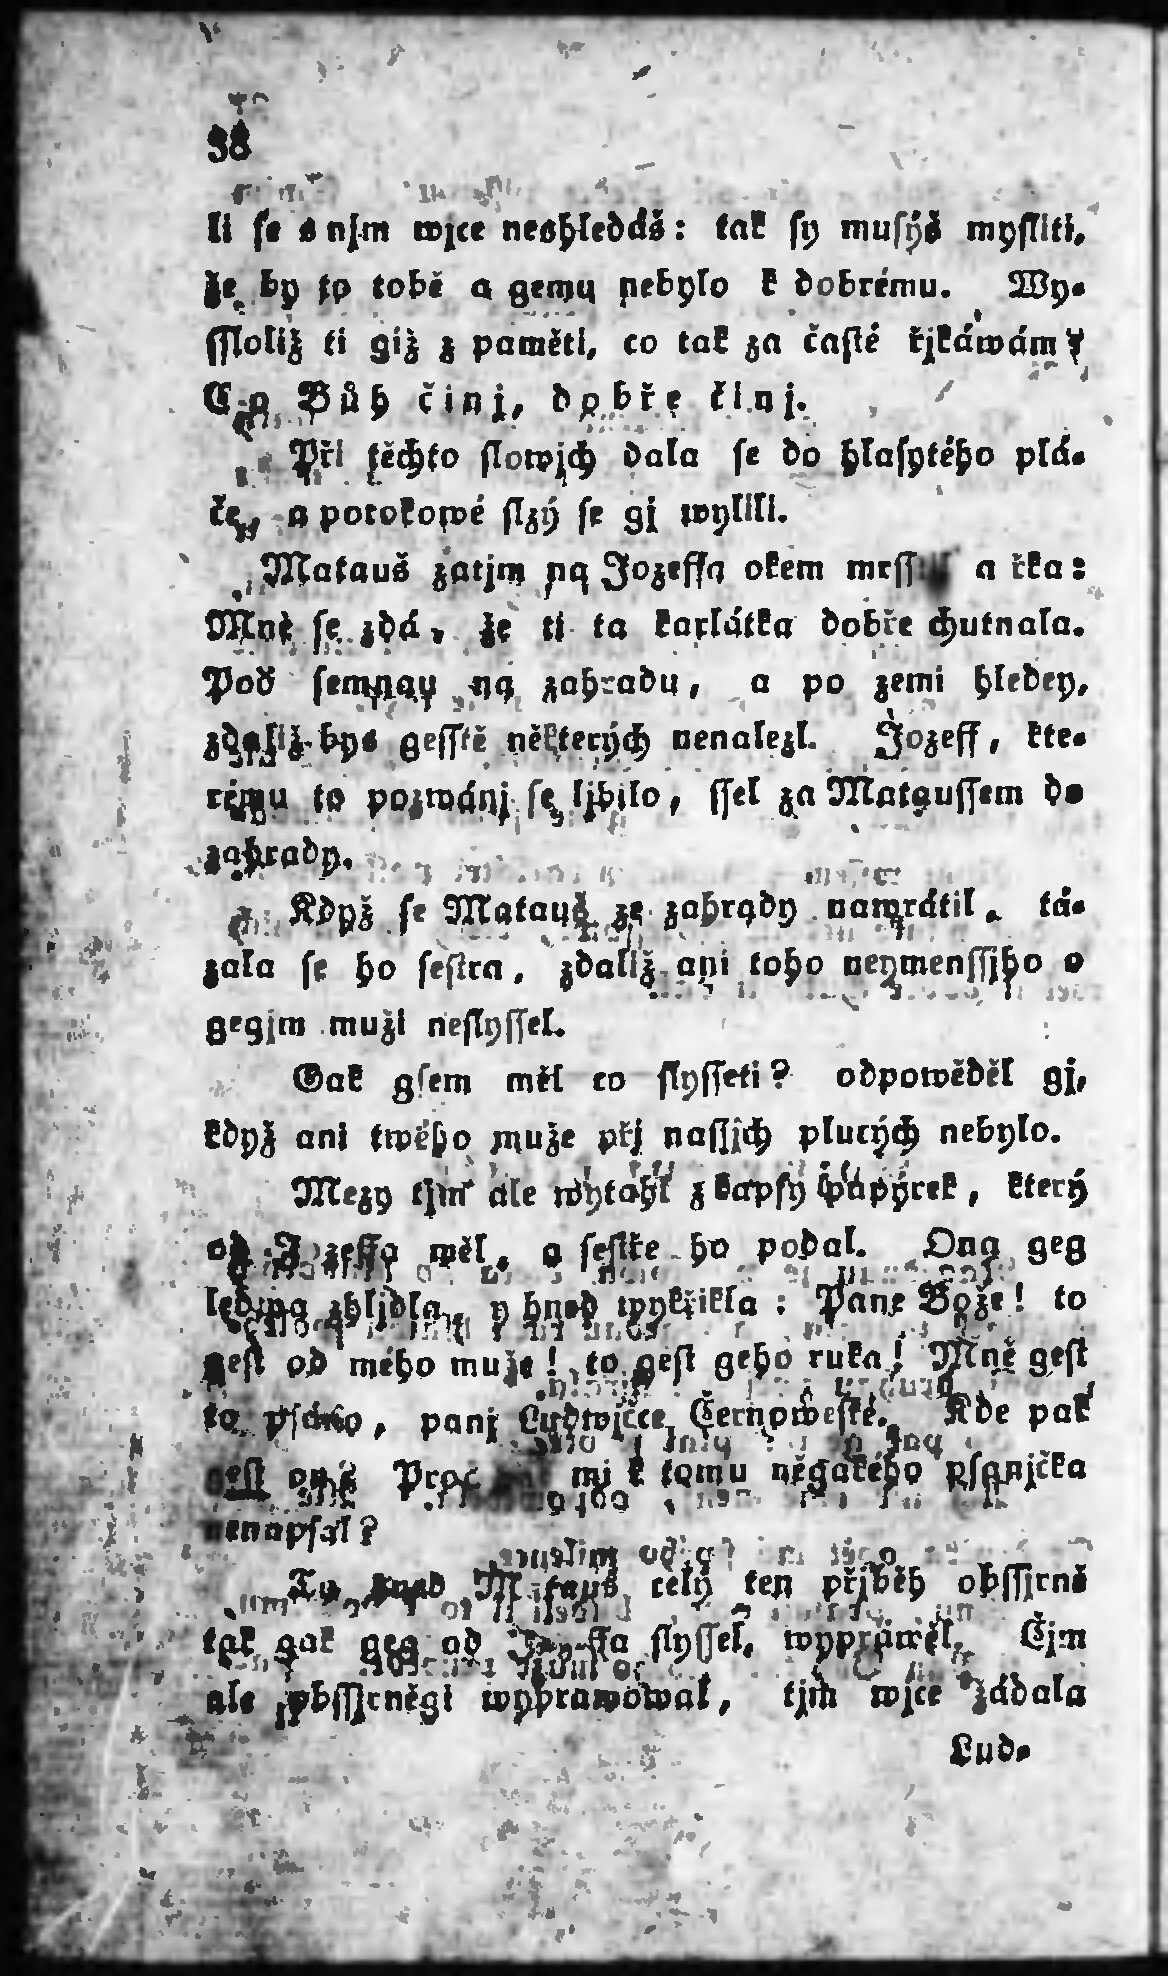 38
li ſe s njm wjce neshledáš: tak ſy muſýš myſliti,
že by to tobě a gemu nebylo k dobrému. Wy-
ſſloliž ti giž z paměti, co tak za čaſté řjkáwám?
Co Bůh činj, dobře činj.
Při těchto ſlowjch dala ſe do hlaſytého plá-
če, a potokowé ſlzý ſe gj wylili.
Matauš zatjm na Jozeffa okem a řka:
Mně ſe zdá, že ti ta karlátka dobře chutnala.
Poď ſemnau na zahradu, a po zemi hledey,
zdaliž bys geſſtě některých nenalezl. Jozeff, kte-
rému to pozwánj ſe ljbilo, ſſel za Matauſſem do
zahrady.
Když ſe Matauš ze zahrady nawrátil, tá-
zala ſe ho ſeſtra, zdaliž ani toho neymenſſjho o
gegjm muži neſlyſſel.
Gak gſem měl co ſlyſſeti? odpowěděl gj,
když ani twého muže při naſſjch plucých nebylo.
Mezy tjm ale wytahl z kapſy papýrek, který
od Jozeffa měl, a ſeſtře ho podal. Ona geg
ledwa zhljdla, y hned wykřikla: Pane Bože! to
geſt od mého muže! to geſt geho ruka! Mně geſt
to pſáno, panj Ludwjčce Černoweſké. Kde pak
geſt on? Proč mi k tomu něgakého pſanjčka
nenapſal?
Tu hned Matauš celý ten přjběh obſſjrně
tak gak geg od Jozeffa ſlyſſel, wyprawěl. Čjm
ale obſſjrněgi wyprawowal, tjm wjce žádala
Lud-